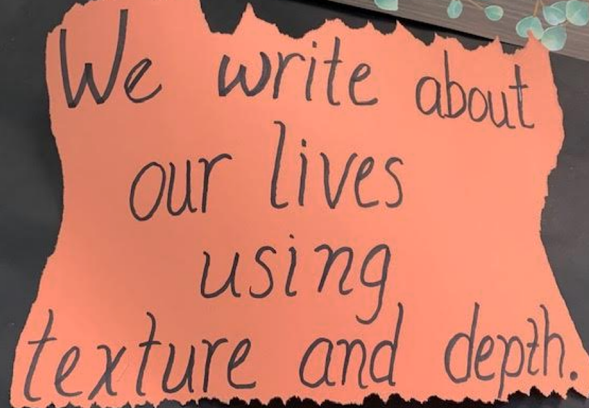 We write about
our lives
using
texture and depth.